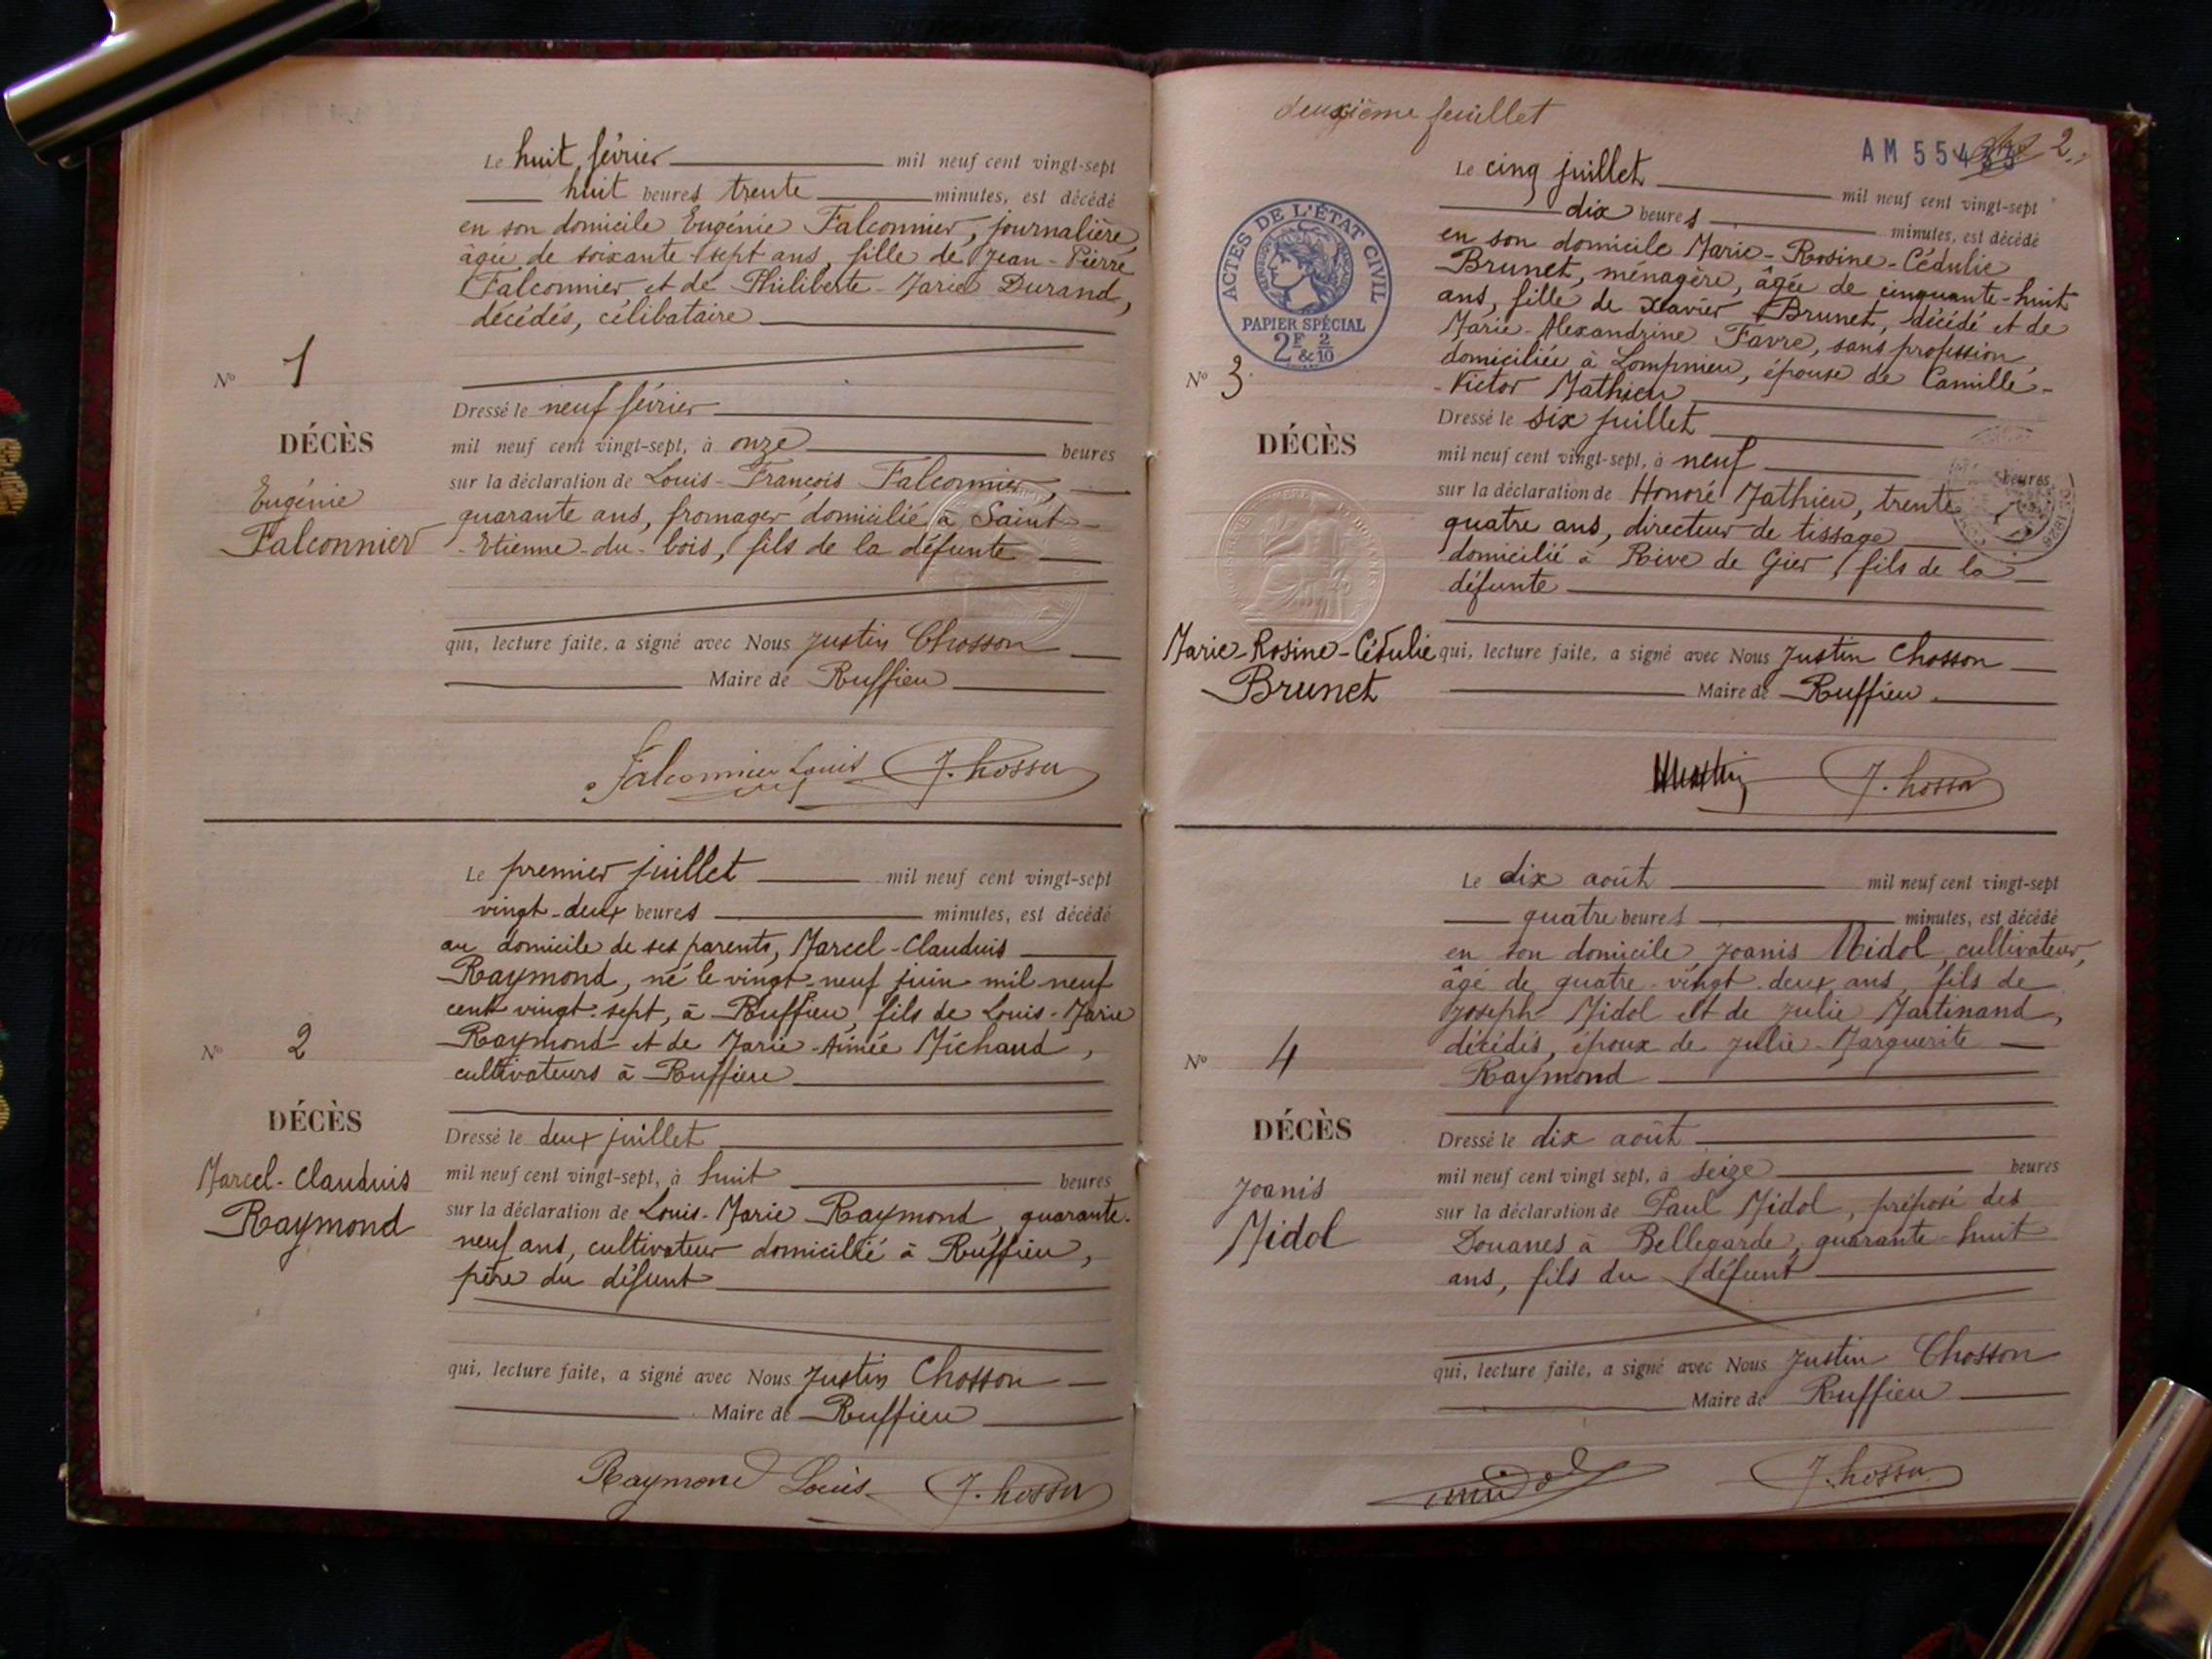 Le huit février mil neuf cent vingt-sept
huit heures trente minutes, est décédé
en son domicile Eugénie Falconnier, journalière,
âgée de soixante sept ans, fille de Jean-Pierre
Falconnier et de Philiberte-Marie Durand,
décédés, célibataire
No 1
Dressé le neuf février
DÉCÈS
mil neuf cent vingt-sept, à onze heures
Eugénie
Falconnier
sur la déclaration de Louis-François Falconnier,
quarante ans, fromager domicilié à Saint-
-Etienne-du-bois, fils de la défunte
qui, lecture faite, a signé avec Nous Justin Chosson
Maire de Ruffieu
Falconnier Louis J. Chosson
Le premier juillet mil neuf cent vingt-sept
vingt-deux heures minutes, est décédé
au domicile de ses parents, Marcel-Claudius
Raymond, né le vingt-neuf juin mil neuf
cent vingt-sept, à Ruffieu, fils de Louis-Marie
Raymond et de Marie-Aimée Michaud,
cultivateurs à Ruffieu
No 2
DÉCÈS
Marcel-Claudius
Raymond
Dressé le deux juillet
mil neuf cent vingt-sept, à huit heures
sur la déclaration de Louis-Marie Raymond, quarante-
neuf ans, cultivateur domicilié à Ruffieu,
père du défunt
qui, lecture faite, a signé avec Nous Justin Chosson
Maire de Ruffieu
Raymond Louis J. Chosson
deuxième feuillet
AM 554 2
Le cinq juillet mil neuf cent vingt-sept
dix heures minutes, est décédé
en son domicile Marie-Rosine-Cédulie
Brunet, ménagère, âgée de cinquante-huit
ans, fille de Xavier Brunet, décédé et de
Marie-Alexandrine Favre, sans profession,
domiciliée à Lompnieu, épouse de Camille-
-Victor Mathieu
ACTES DE L'ÉTAT CIVIL
PAPIER SPÉCIAL
2F & 2/10
No 3
DÉCÈS
Marie-Rosine-Cédulie
Brunet
Dressé le six juillet
mil neuf cent vingt-sept, à neuf heures
sur la déclaration de Honoré Mathieu, trente
quatre ans, directeur de tissage
domicilié à Rive de Gier, fils de la
défunte
qui, lecture faite, a signé avec Nous Justin Chosson
Maire de Ruffieu.
J. Chosson
Le dix août mil neuf cent vingt-sept
quatre heures minutes, est décédé
en son domicile, Joanis Midol, cultivateur,
âgé de quatre-vingt-deux ans, fils de
Joseph Midol et de Julie Martinand,
décédés, époux de Julie-Marguerite
Raymond
No 4
DÉCÈS
Joanis
Midol
Dressé le dix août
mil neuf cent vingt sept, à seize heures
sur la déclaration de Paul Midol, préposé des
Douanes à Bellegarde, quarante-huit
ans, fils du défunt
qui, lecture faite, a signé avec Nous Justin Chosson
Maire de Ruffieu
Midol J. Chosson